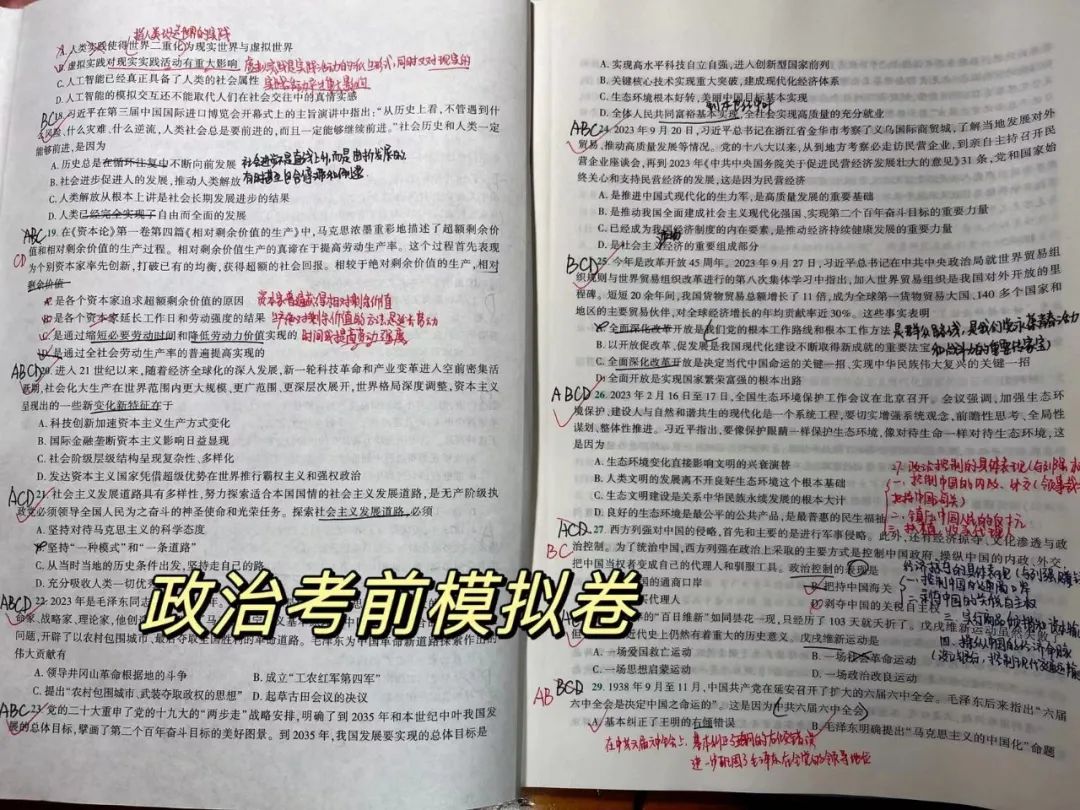 A.人类实践使得世界二重化为现实世界与虚拟世界
B.虚拟实践对现实实践活动有重大影响
C.人工智能已经真正具备了人类的社会属性
D.人工智能的模拟交互还不能取代人们在社会交往中的真情实感
BC
18.习近平在第三届中国国际进口博览会开幕式上的主旨演讲中指出:“从历史上看,不管遇到什
么风险、什么灾难、什么逆流,人类社会总是要前进的,而且一定能够继续前进。”社会历史和人类一定
能够前进,是因为
A.历史总是在循环往复中不断向前发展
B.社会进步促进人的发展,推动人类解放
C.人类解放从根本上讲是社会长期发展进步的结果
D.人类已经完全实现了自由而全面的发展
ABC
CD
19.在《资本论》第一卷第四篇《相对剩余价值的生产》中,马克思浓墨重彩地描述了超额剩余价
值和相对剩余价值的生产过程。相对剩余价值生产的真谛在于提高劳动生产率。这个过程首先表现
为个别资本家率先创新,打破已有的均衡,获得超额的社会回报。相较于绝对剩余价值的生产,相对
剩余价值
A.是各个资本家追求超额剩余价值的原因
B.是各个资本家延长工作日和劳动强度的结果
C.是通过缩短必要劳动时间和降低劳动力价值实现的
D.是通过全社会劳动生产率的普遍提高实现的
ABCD
20.进入21世纪以来,随着经济全球化的深入发展,新一轮科技革命和产业变革进入空前密集活
跃期,社会化大生产在世界范围内更大规模、更广范围、更深层次展开,世界格局深度调整,资本主义
呈现出的一些新变化新特征在于
A.科技创新加速资本主义生产方式变化
B.国际金融垄断资本主义影响日益显现
C.社会阶层级结构呈现复杂性、多样化
D.发达资本主义国家凭借超级优势在世界推行霸权主义和强权政治
ACD
21.社会主义发展道路具有多样性,努力探索适合本国国情的社会主义发展道路,是无产阶级执
政党必须领导全国人民为之奋斗的神圣使命和光荣任务。探索社会主义发展道路,必须
A.坚持对待马克思主义的科学态度
B.坚持“一种模式”和“一条道路”
C.从当时当地的历史条件出发,坚持走自己的路
D.充分吸收人类一切优秀
ABCD
22.2023年是毛泽东同志
命家、战略家、理论家,他创
问题,开辟了以农村包围城市、最后夺取全国胜利的革命道路。毛泽东为中国革命新道路探索作出的
伟大贡献有
A.领导井冈山革命根据地的斗争 B.成立“工农红军第四军”
C.提出“农村包围城市、武装夺取政权的思想” D.起草古田会议的决议
ABC
23.党的二十大重申了党的十九大的“两步走”战略安排,明确了到2035年和本世纪中叶我国发
展的总体目标,擘画了第二个百年奋斗目标的美好图景。到2035年,我国发展要实现的总体目标是
A.实现高水平科技自立自强,进入创新型国家前列
B.关键核心技术实现重大突破,建成现代化经济体系
C.生态环境根本好转,美丽中国目标基本实现
D.全体人民共同富裕基本实现,全社会实现高质量的充分就业
ABC
24.2023年9月20日,习近平总书记在浙江省金华市考察了义乌国际商贸城,了解当地发展对外
贸易,推动高质量发展等情况。党的十八大以来,从到地方考察必走访民营企业,到亲自主持召开民
营企业座谈会,再到2023年《中共中央国务院关于促进民营经济发展壮大的意见》31条,党和国家始
终关心和支持民营经济的发展,这是因为民营经济
A.是推进中国式现代化的生力军,是高质量发展的重要基础
B.是推动我国全面建成社会主义现代化强国,实现第二个百年奋斗目标的重要力量
C.已经成为我国经济制度的内在要素,是推动经济持续健康发展的重要力量
D.是社会主义经济的重要组成部分
BCD
25.今年是改革开放45周年。2023年9月27日,习近平总书记在中共中央政治局就世界贸易组
织规则与世界贸易组织改革进行的第八次集体学习中指出,加入世界贸易组织是我国对外开放的里
程碑。短短20余年间,我国货物贸易总额增长了11倍,成为全球第一货物贸易大国、140多个国家和
地区的主要贸易伙伴,对全球经济增长的年均贡献率近30%。这些事实表明
A.全面深化改革开放是我们党的根本工作路线和根本工作方法
B.以开放促改革、促发展是我国现代化建设不断取得新成就的重要法宝
C.全面深化改革开放是决定当代中国命运的关键一招、实现中华民族伟大复兴的关键一招
D.全面开放是实现国家繁荣富强的根本出路
ABCD
26.2023年2月16日至17日,全国生态环境保护工作会议在北京召开。会议强调,加强生态环
境保护、建设人与自然和谐共生的现代化是一个系统工程,要切实增强系统观念,前瞻性思考、全局性
谋划、整体性推进。习近平指出,要像保护眼睛一样保护生态环境,像对待生命一样对待生态环境,这
是因为
A.生态环境变化直接影响文明的兴衰演替
B.人类文明的发展离不开良好生态环境这个根本基础
C.生态文明建设是关系中华民族永续发展的根本大计
D.良好的生态环境是最公平的公共产品,是最普惠的民生福祉
ACD
BC
27.西方列强对中国的侵略,首先和主要的是进行军事侵略。此外,还有经济掠夺、文化渗透与政
治控制。为了统治中国,西方列强在政治上采取的主要方式是控制中国政府,操纵中国的内政、外交,
把中国当权者变成自己的代理人和驯服工具。政治控制的表现是
国的通商口岸 B.把持中国海关
买代理人 D.剥夺中国的关税自主权
的“百日维新”如同昙花一现,只经历了103天就夭折了。戊戌维新运动虽然失败了,
近代史上仍然有着重大的历史意义。戊戌维新运动是
A.一场爱国救亡运动 B.一场社会革命运动
C.一场思想启蒙运动 D.一场政治改良运动
AB BCD
29.1938年9月至11月,中国共产党在延安召开了扩大的六届六中全会。毛泽东后来指出“六届
六中全会是决定中国之命运的”。这是因为中共六届六中全会
A.基本纠正了王明的右倾错误 B.毛泽东明确提出“马克思主义的中国化”命题
政治考前模拟卷